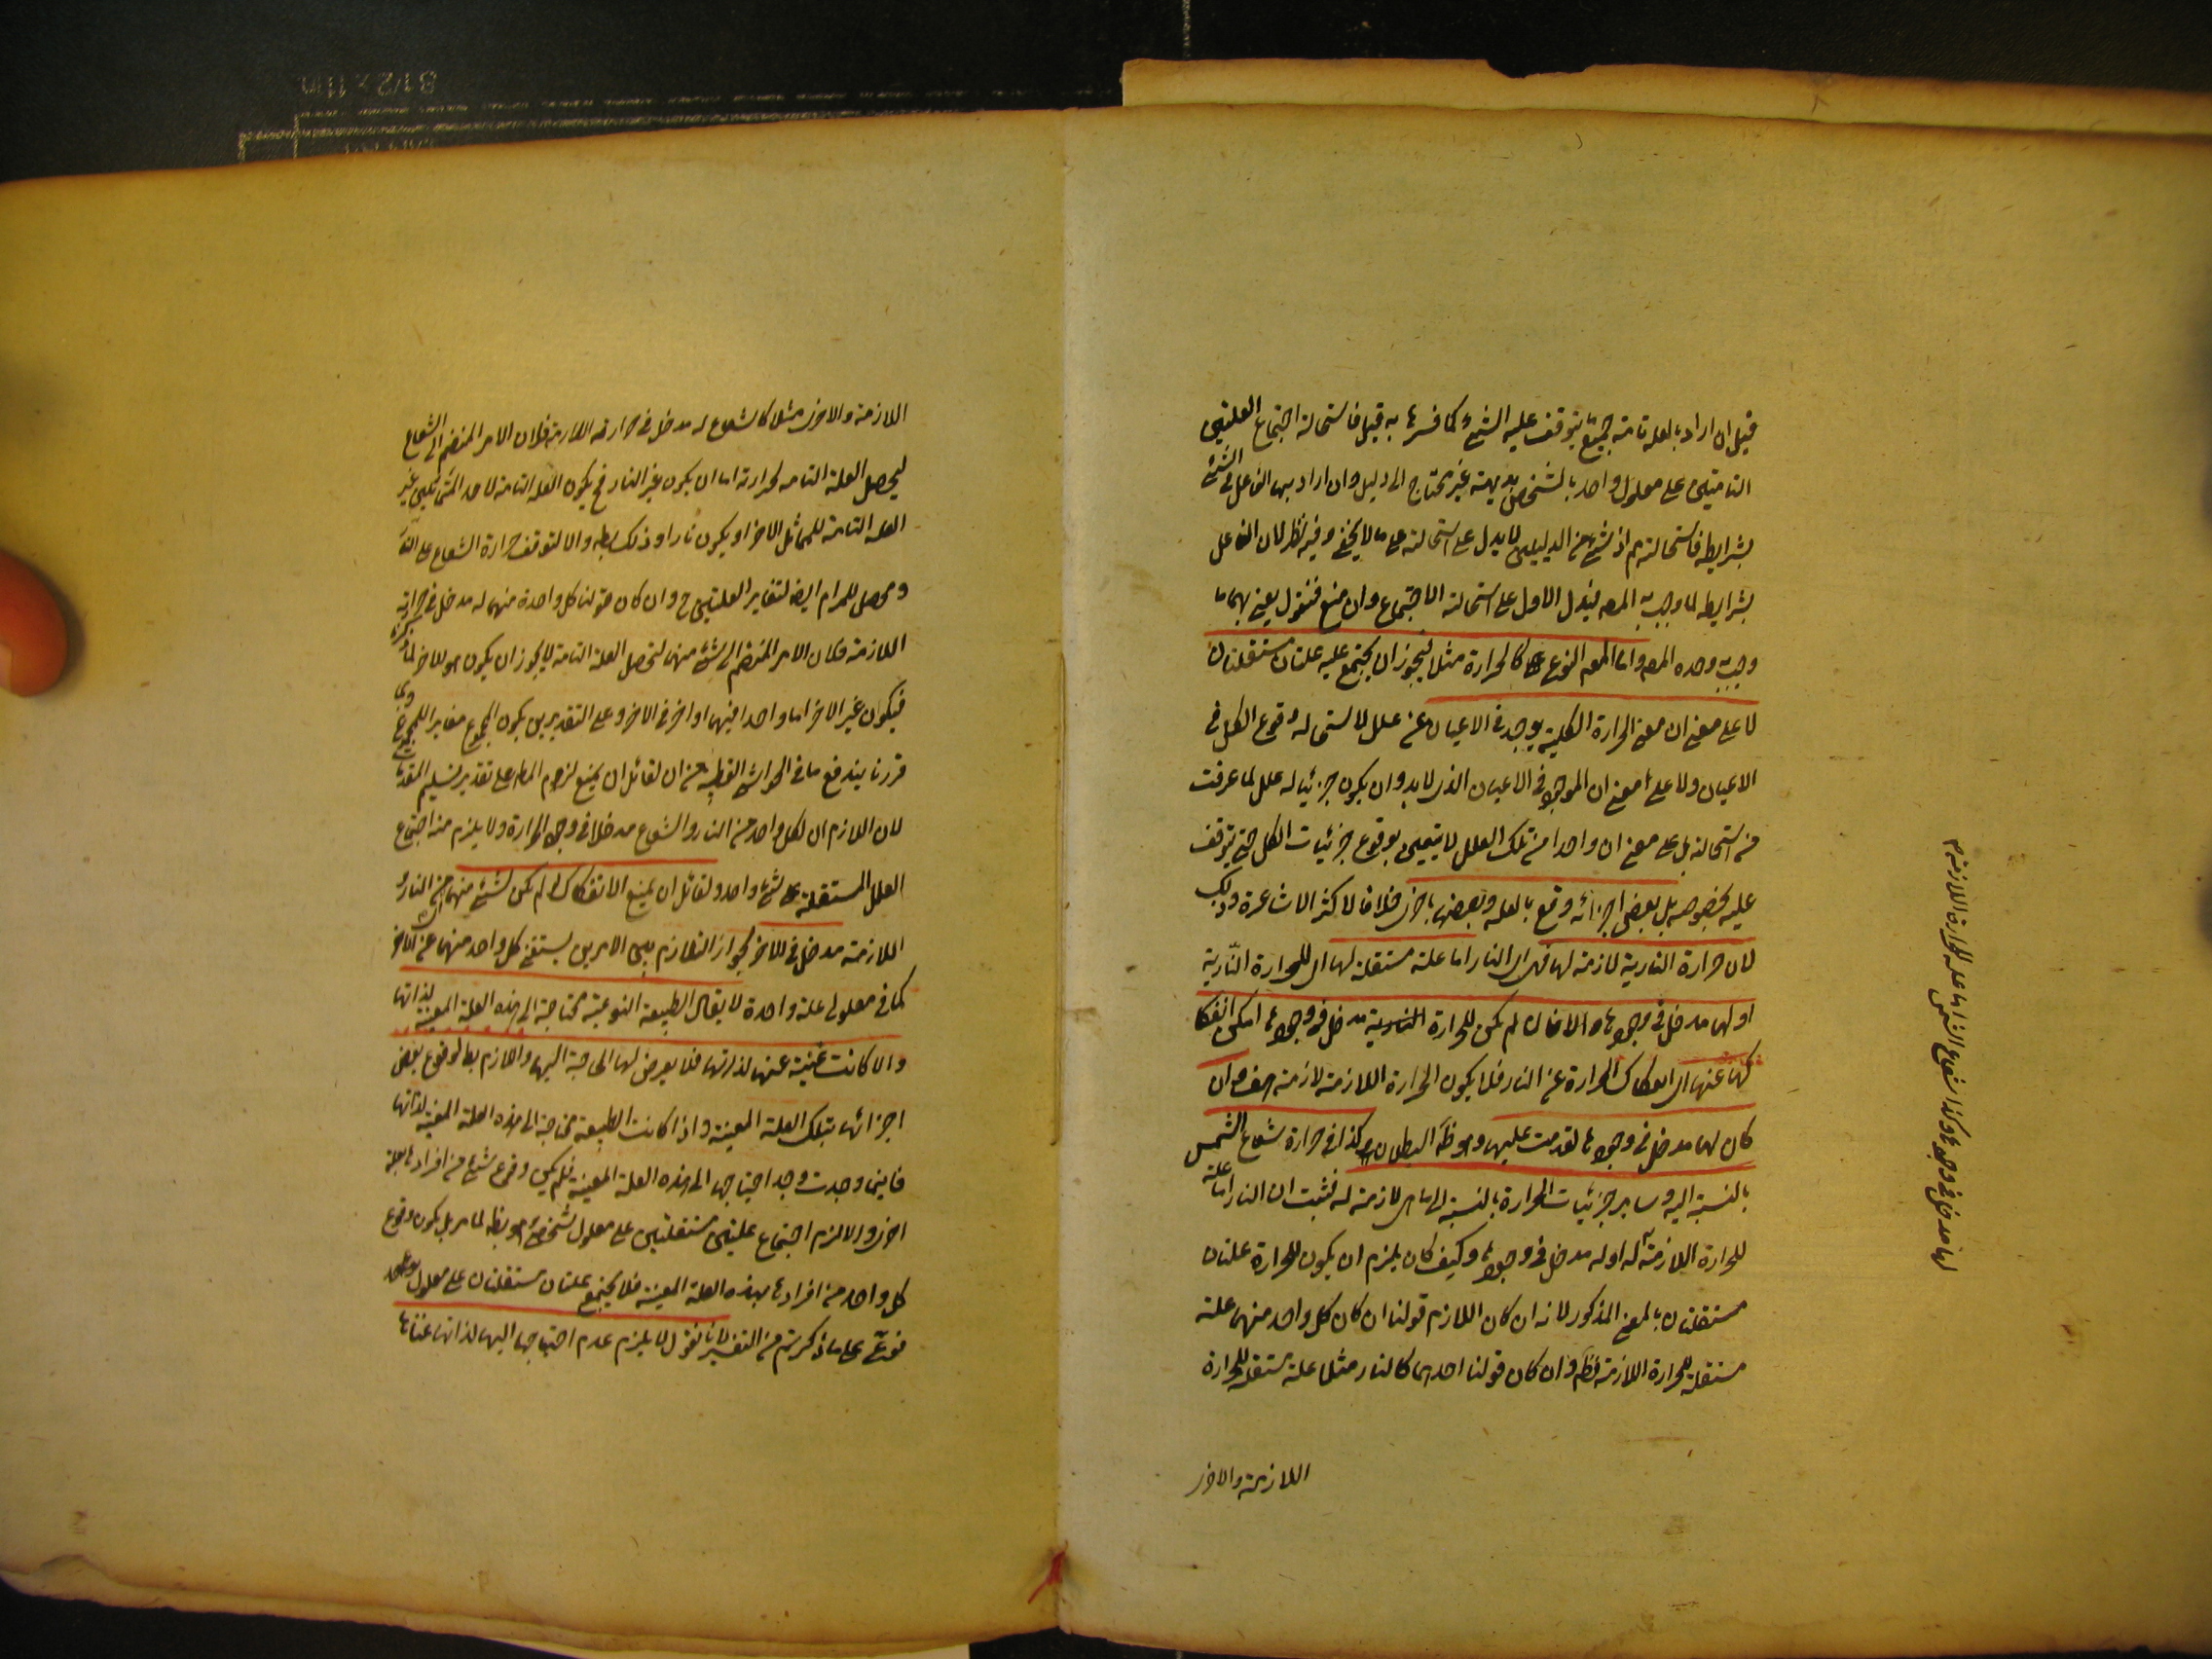 قيل ان اراد بالعلة تامة جميع ما يتوقف عليه الشئ كما فسرها به قيل فاستحالة اجتماع العلتين
التامتين على معلول واحد بالشخص بديهية غير محتاج الى دليل وان اراد بها الفاعل فى الشئ
بشرايطه فاستحالته مم اذ شئ من الدليلين لا يدل على استحالته على ما لا يخفى وفيه نظر لان الفاعل
بشرايطه لما وجب به المعه فيدل الاول على استحالة الاجتماع وان منع فنقول يعنى بهما ما
وجب به وحده المعه واما المعه النوعى كالحرارة مثلا فيجوز ان يجتمع عليه علتان مستقلتان
لا على معنى ان معنى الحرارة الكلية يوجد فى الاعيان عن علل لاستحاله وقوع الكل فى
الاعيان ولا على معنى ان الموجود فى الاعيان الذى لابد وان يكون جزئيا له علل لما عرفت
من استحالته بل على معنى ان واحدا من تلك العلل لا يتعين بوقوع جزئيات الكل حتى يتوقف
عليه بخصوصه بل بعض اجزائه وقع بالعلة وبعضها باخرى خلافا لاكثر الاشاعرة وذلك
لان حرارة النارية لازمة لها فهى اى النار اما علة مستقلة لها اى للحرارة النارية
او لها مدخل فى وجودها والا فان لم يكن للحرارة النارية مدخل فى وجودها امكن انفكا
كها عنها اى انفكاك الحرارة عن النار فلا يكون الحرارة اللازمة لازمة هف وان
كان لها مدخل فى وجودها لقدمت عليها وهو ظه البطلان وكذا فى حرارة شعاع الشمس
بالنسبة اليه وساير جزئيات الحرارة بالنسبة الى ما هى لازمة له فثبت ان النار اما علة
للحرارة اللازمة له او له مدخل فى وجودها وكيف كان يلزم ان يكون للحرارة علتان
مستقلتان بالمعنى المذكور لانه ان كان اللازم قولنا ان كان كل واحد منهما علة
مستقلة للحرارة اللازمة فظه وان كان قولنا احدهما كالنار مثلا علة مستقلة للحرارة
اللازمة والاخر
لها مدخل فى وجودها وكذا شعاع الشمس اما علة للحرارة اللازمة
اللازمة والاخرى مثلا كالشعاع له مدخل فى حرارته اللازمة فلان الامر المنضم الى الشعاع
ليحصل العلة التامه لحرارته اما ان يكون غير النار فح يكون العلة التامة لاحد المتماثلين غير
العلة التامة للمماثل الاخر او يكون نارا وذلك بطه والا لتوقف حرارة الشعاع على النار
ومحصل للمرام ايضا لتغاير العلتين ح وان كان قولنا كل واحدة منهما له مدخل فى حرارته
اللازمة فلان الامر المنضم الى شئ منهما لتحصل العلة التامة لا يجوز ان يكون هو الاخر لما ذكرنا
فيكون غير الاخر اما واحدا فيهما او اخر فى الاخر وعلى التقديرين يكون المجموع مغاير للمجموع وبما
قررنا يندفع ما فى الحواشى القطبية من ان لقائل ان يمنع لزوم المط على تقدير تسليم المقدمات
لان اللازم ان لكل واحد من النار والشعاع مدخلا فى وجود الحرارة ولا يلزم منه اجتماع
العلل المستقلة على شئ واحد ولقائل ان يمنع الانفكاك ان لم يكن لشئ منهما من النار
اللازمة مدخل فى الاخر لجواز التلازم بين الامرين يستغنى كل واحد منهما عن الاخر
كما فى معلولى علة واحدة لا يقال الطبيعة النوعية محتاجة الى هذه العلة المعينة لذاتها
والا كانت غنية عنها لذاتها فلا يعرض لها الحاجة اليها واللازم بط لوقوع بعض
اجزائها بتلك العلة المعينة واذا كانت الطبيعة محتاجة الى هذه العلة المعينة لذاتها
فاينما وجدت وجد احتياجها الى هذه العلة المعينة فلم يكن وقوع شئ من افرادها بعلة
اخرى والا لزم اجتماع علتين مستقلتين على معلول شخصى وهو بطه لما مر بل يكون وقوع
كل واحد من افرادها بهذه العلة المعينة فلا يجتمع علتان مستقلتان على معلول
نوعى على ما ذكرتم من التفسير لانا نقول لا يلزم عدم احتياجها اليها لذاتها غناها